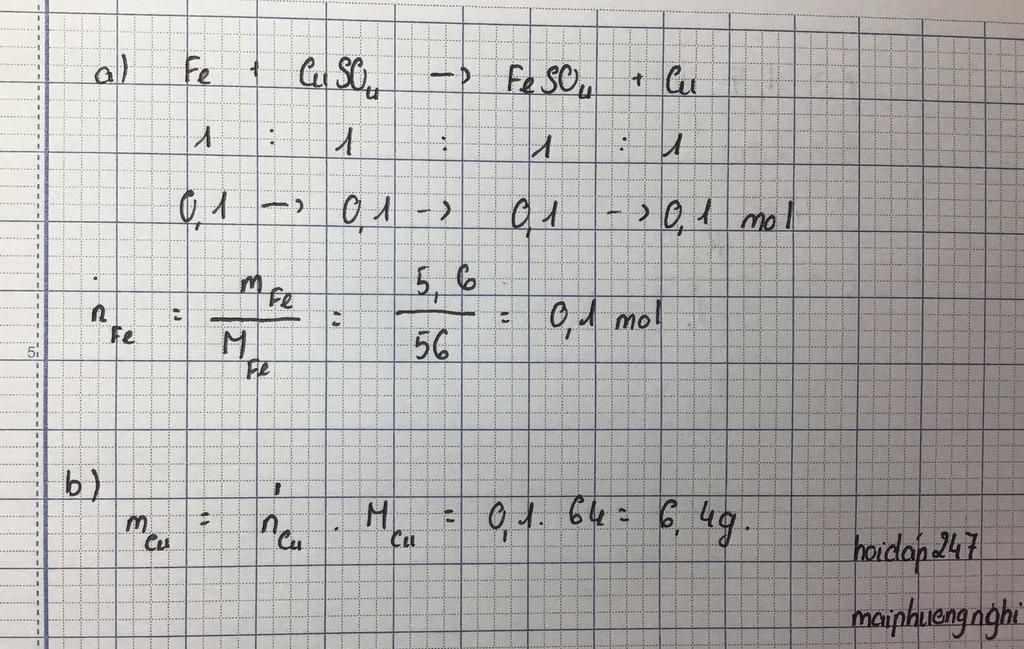 a) Fe + CuSO₄ -> FeSO₄ + Cu
1 : 1 : 1 : 1
0,1 -> 0,1 -> 0,1 -> 0,1 mol
n_Fe = m_Fe / M_Fe = 5,6 / 56 = 0,1 mol
5
b)
m_Cu = n_Cu . M_Cu = 0,1. 64 = 6,4g.
hoidap247
maiphuongnghi